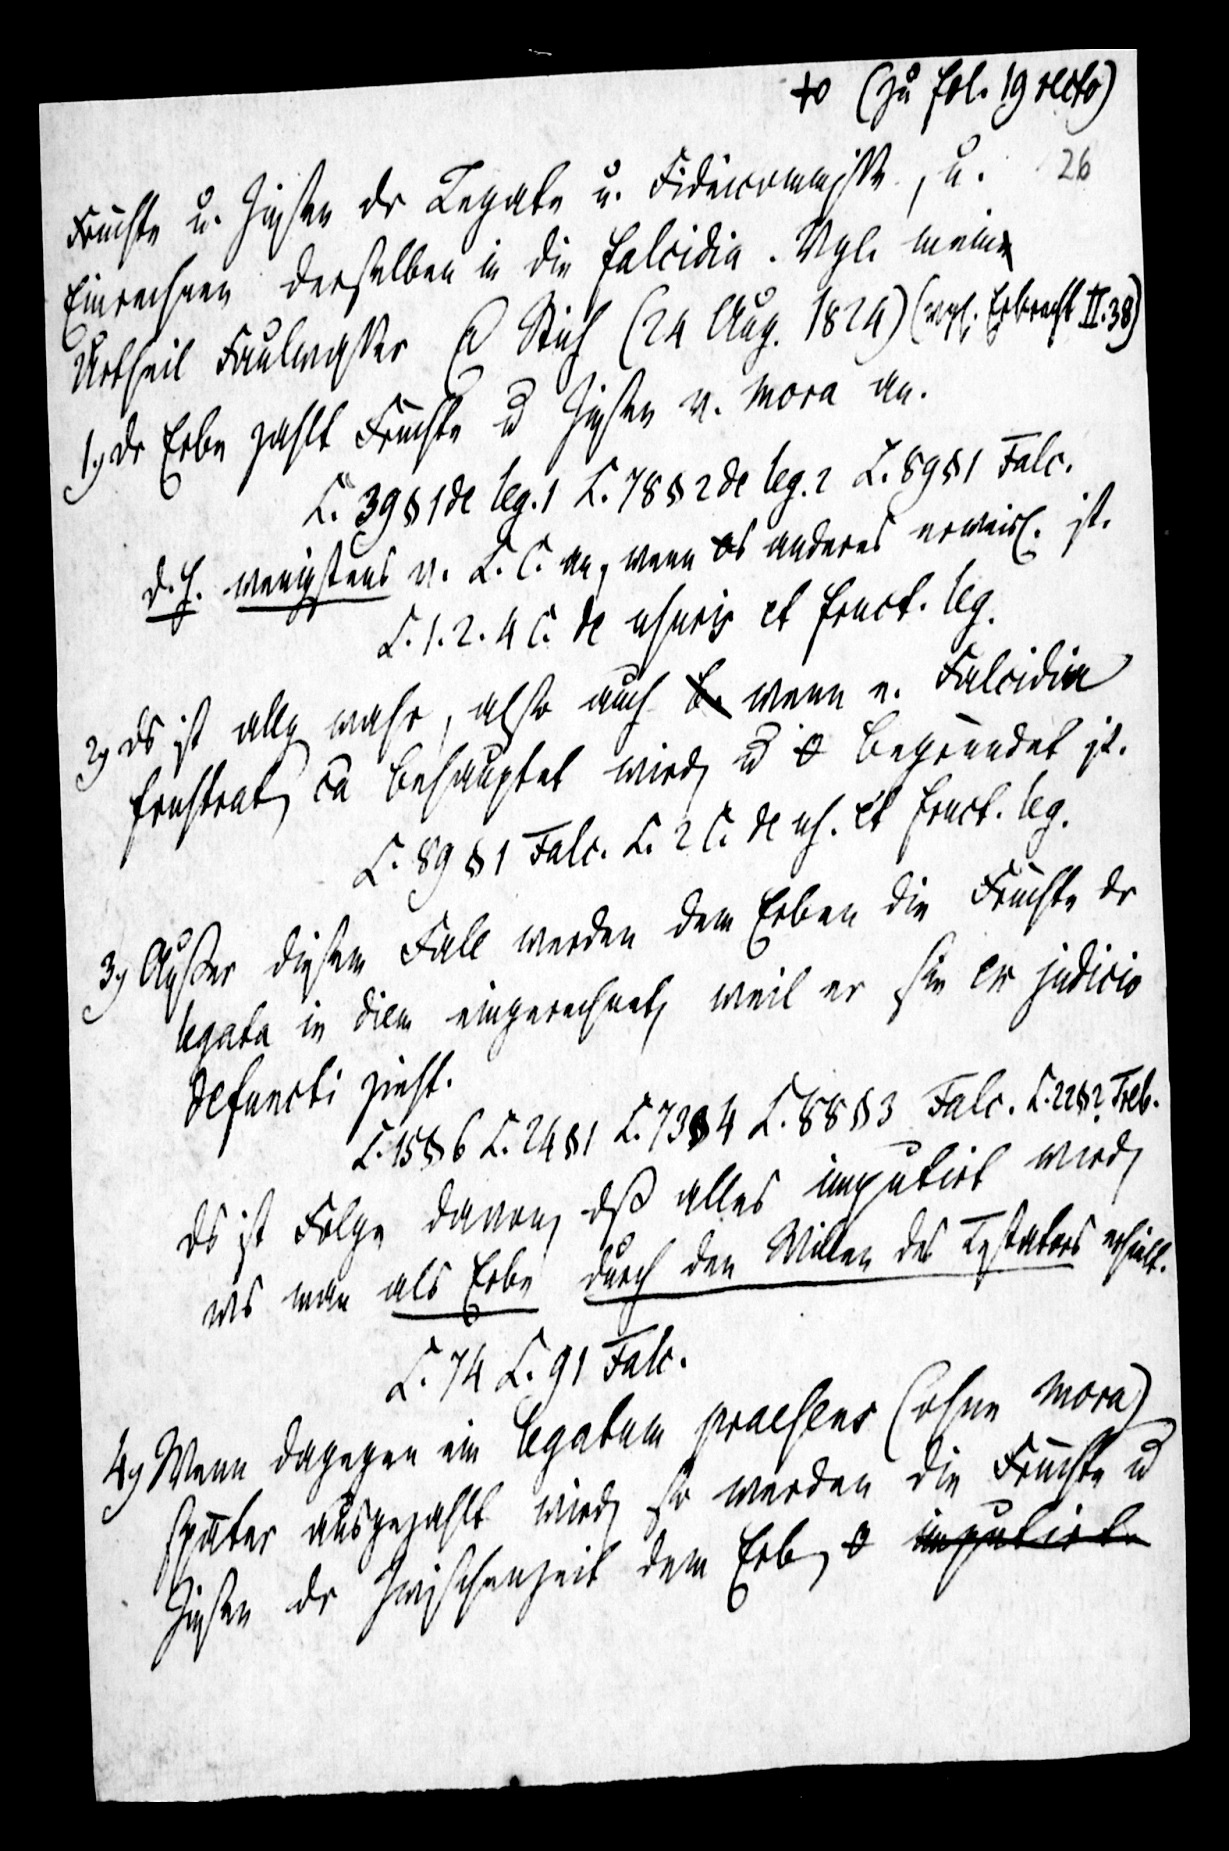 (zu fol. 19 recto)
26
Früchte u. Zinsen dr Legate u. Fideicommisse, u.
Einrechnen derselben in die falcidia. Vgl. mein
Urtheil Faulwasser Stich (24 Aug. 1824) (vgl. Erbrecht II.38)
1) dr Erbe zahlt Früchte u Zinsen v. Mora an.
L. 39 § 1 de leg. 1 L. 78 § 2 de leg. 2 L. 89 § 1 Falc.
d. h. wenigstens v. L. C. an, wenn anderes erweisl. ist.
L. 1. 2. 4 C. de usuris et fruct. leg.
2) ds ist allg wahr, also auch wenn e. Falcidia
frustrat ca behauptet wird u o begründet ist.
L. 89 § 1 Falc. L. 2 C. de us. et fruct. leg.
3) Außer diesem Fall werden dem Erben die Früchte dr
legata in diem eingerechnet, weil er sie ex judicio
defuncti zieht.
L. 15 § 6 L. 24 § 1 L. 73 § 4 L. 88 § 3 Falc. L. 22 § 2 Treb.
ds ist Folge davon, dß alles imputirt wird,
ws man als Erbe durch den Willen des Testators erhielt.
L. 74 L. 91 Falc.
4) Wenn dagegen ein legatum praesens (ohne Mora)
später ausgezahlt wird, so werden die Früchte u
Zinsen dr Zwischenzeit dem Erb, o imputirt.